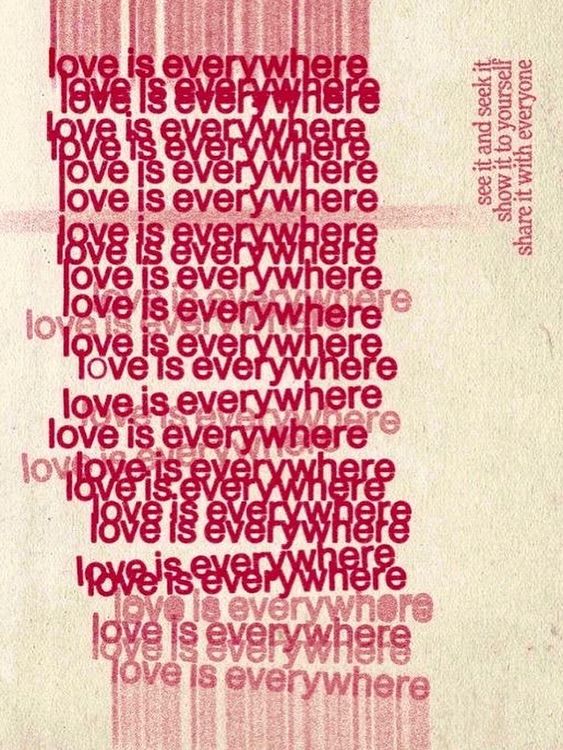 love is everywhere
love is everywhere
love is everywhere
love is everywhere
love is everywhere
love is everywhere
love is everywhere
love is everywhere
love is everywhere
love is everywhere
love is everywhere
love is everywhere
love is everywhere
love is everywhere
love is everywhere
love is everywhere
love is everywhere
love is everywhere
love is everywhere
love is everywhere
love is everywhere
love is everywhere
love is everywhere
love is everywhere
love is everywhere
love is everywhere
love is everywhere
love is everywhere
love is everywhere
see it and seek it
show it to yourself
share it with everyone